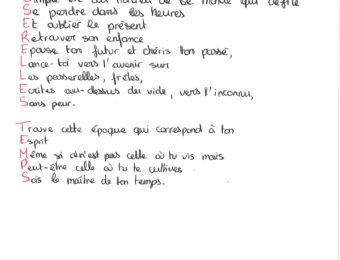 Se perdre dans les heures
Et oublier le présent
Retrouver son enfance
Epouse ton futur et chéris ton passé,
Lance-toi vers l'avenir sur
Les passerelles, frêles,
Ecrites au-dessus du vide, vers l'inconnu,
Sans peur.
Trouve cette époque qui correspond à ton
Esprit
Même si ce n'est pas celle où tu vis mais
Peut-être celle où tu te cultives
Sois le maître de ton temps.